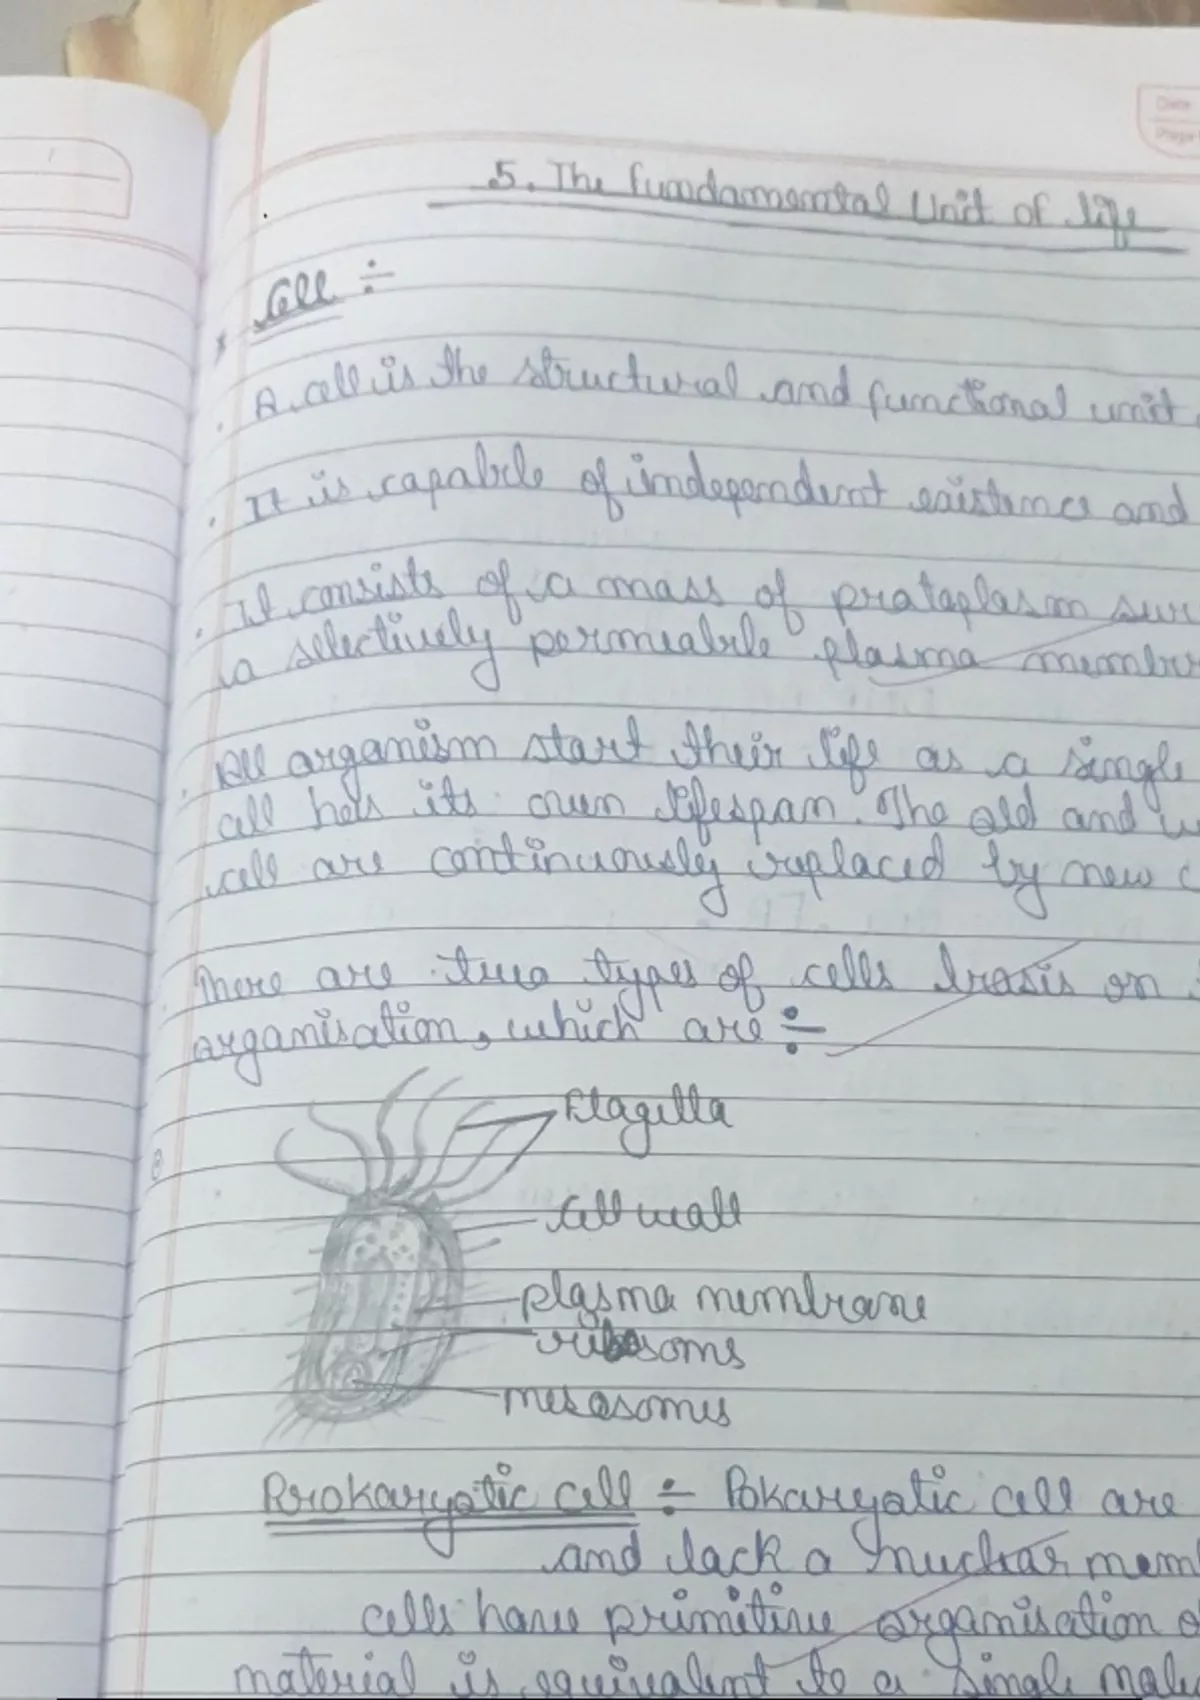 Date
Page
5. The fundamental Unit of life
* Cell ÷
. A cell is the structural and functional unit
. It is capable of independent existence and
. It consists of a mass of prataplasm sur
a selectively permeable plasma membr
. All organism start their life as a single
cell has its own lifespan. The old and w
cell are continuously replaced by new c
. There are two types of cells brasis on
organisation, which are ÷
Flagella
Cell wall
plasma membrane
ribosoms
mesosomes
Prokaryotic cell ÷ Pokaryotic cell are
and lack a nuclear mem
cells have primitive organisation o
material is equivalent to a single mole